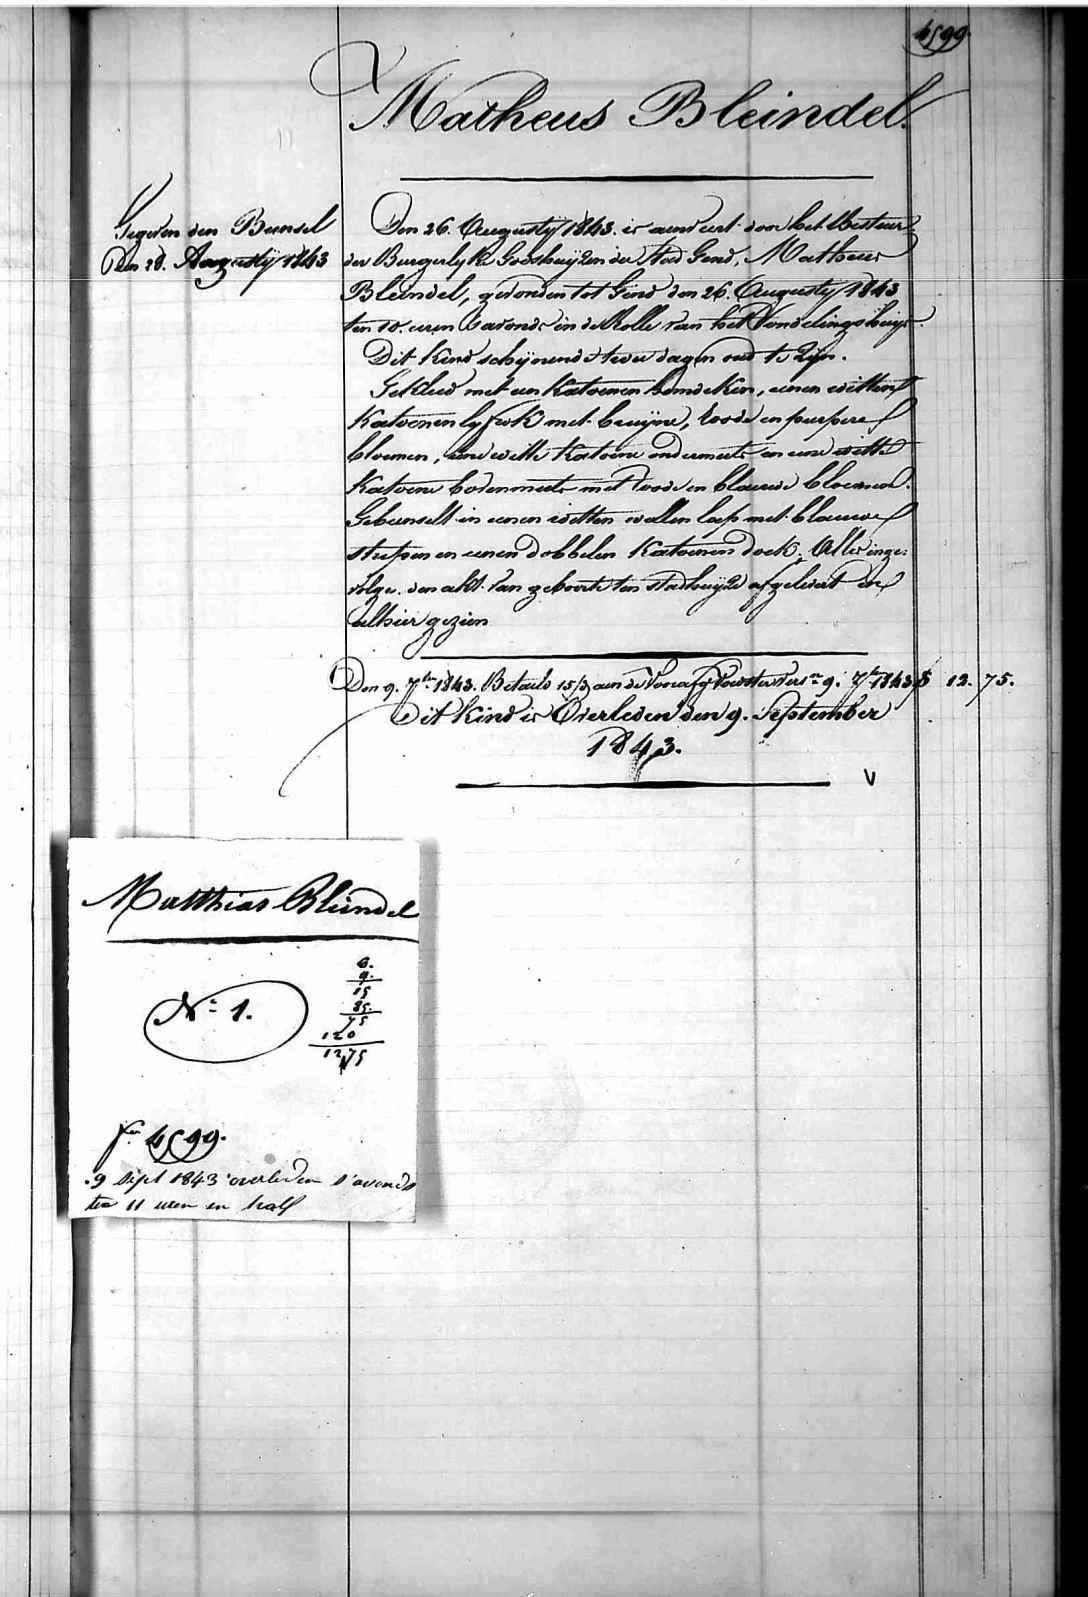 4599.
Matheus Bleindel.
Gegeven den Bunsel
Den 28. Augusty 1843
Den 26. Augusty 1843. is aenveert door het Bestuer
der Burgerlyke Godshuyzen der stad Gend, Matheus
Bleindel, gevonden tot Gend den 26. Augusty 1843
ten 10. uren savonds in de Rolle van het Vondelingshuys.
Dit kind schynende twee dagen oud te zyn.
Gekleed met een katoenen hemdeken, eenen witten
katoenen lyfrok met bruyne, roode en purpere
bloemen, eene witte katoene ondermuts en eene witte
katoene bovenmuts met roode en blauwe bloemen.
Gebunselt in eenen witten wollen lap met blauwe
strepen en eenen dobbelen katoenen doek. Alles inge-
volge den akt van geboorte ten stadhuyze afgelevert en
alhier gezien
Den 9. 7ber 1843. Betaeld 15/3 aen de 9. 7ber 1843 12. 75.
Dit kind is Overleden den 9. September
1843.
V
Matthias Bleindel
6.
9.
15
85.
75
120
1275
No 1.
fo 4599.
9 Sept 1843 overleden s'avonds
ten 11 uren en half